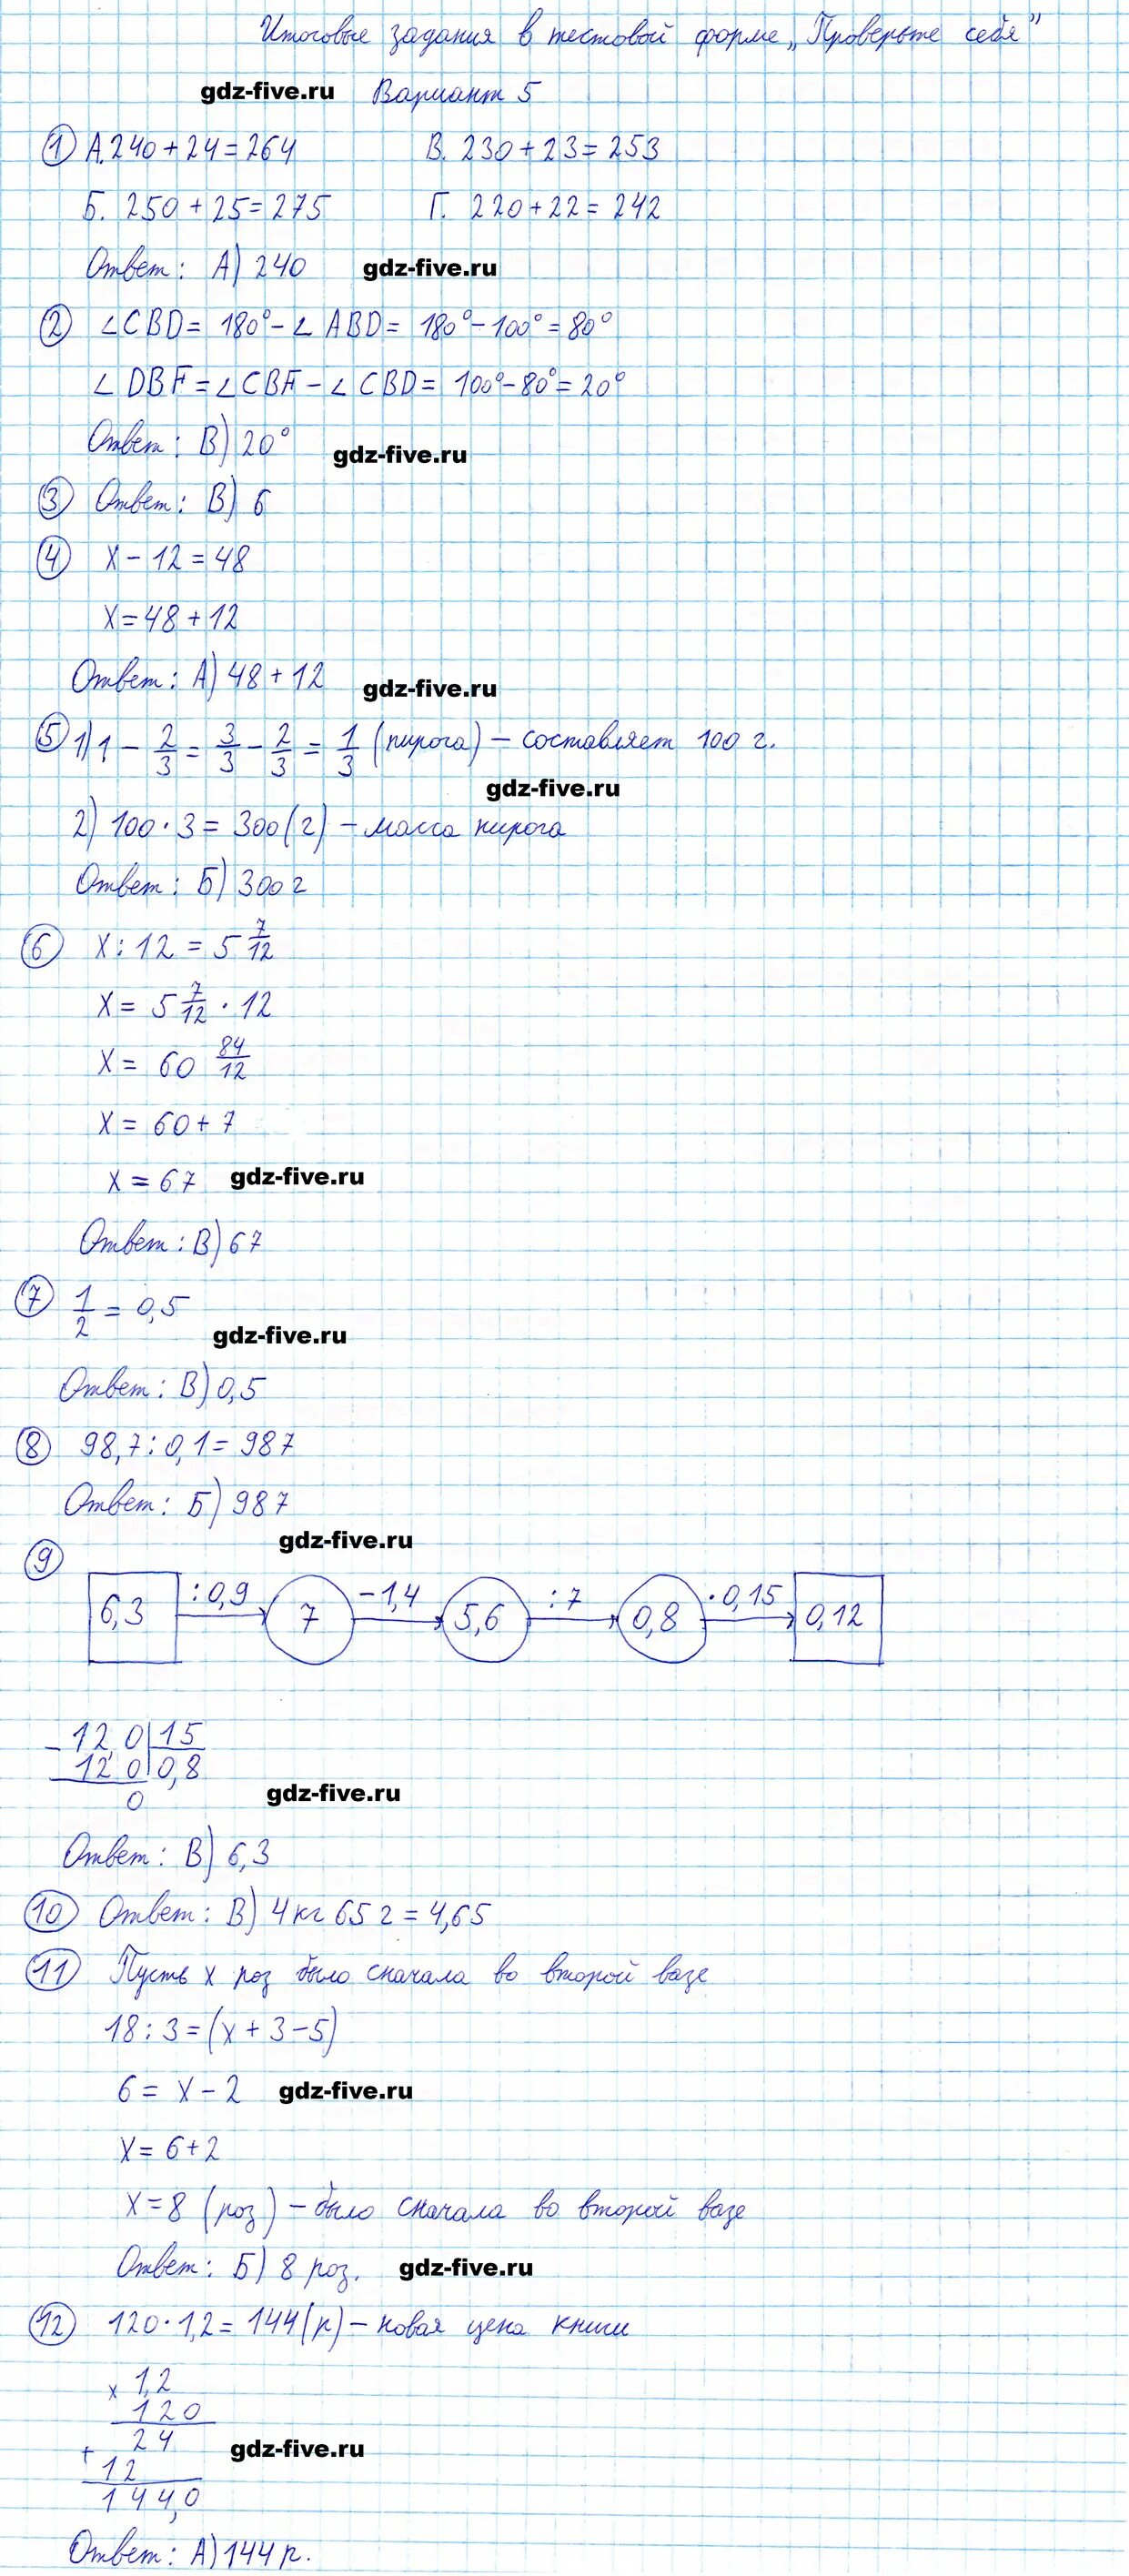 Итоговые задания в тестовой форме „Проверьте себя”
gdz-five.ru Вариант 5
1 А. 240 + 24 = 264 В. 230 + 23 = 253
Б. 250 + 25 = 275 Г. 220 + 22 = 242
Ответ: А) 240 gdz-five.ru
2 ∠CBD = 180° - ∠ABD = 180° - 100° = 80°
∠DBF = ∠CBF - ∠CBD = 100° - 80° = 20°
Ответ: В) 20° gdz-five.ru
3 Ответ: В) 6
4 x - 12 = 48
x = 48 + 12
Ответ: А) 48 + 12 gdz-five.ru
5 1) 1 - 2/3 = 3/3 - 2/3 = 1/3 (пирога) - составляет 100 г.
gdz-five.ru
2) 100 · 3 = 300 (г) - масса пирога
Ответ: Б) 300 г
6 x : 12 = 5 7/12
x = 5 7/12 · 12
x = 60 84/12
x = 60 + 7
x = 67 gdz-five.ru
Ответ: В) 67
7 1/2 = 0,5
gdz-five.ru
Ответ: В) 0,5
8 98,7 : 0,1 = 987
Ответ: Б) 987
gdz-five.ru
9
6,3 : 0,9 7 - 1,4 5,6 : 7 0,8 · 0,15 0,12
- 12,0 | 15
12 0 | 0,8
0 gdz-five.ru
Ответ: В) 6,3
10 Ответ: В) 4 кг 65 г = 4,65
11 Пусть x роз было сначала во второй вазе
18 : 3 = (x + 3 - 5)
6 = x - 2 gdz-five.ru
x = 6 + 2
x = 8 (роз) - было сначала во второй вазе
Ответ: Б) 8 роз. gdz-five.ru
12 120 · 1,2 = 144 (р) - новая цена книги
x 1,2
120
24
+ gdz-five.ru
12
144,0
Ответ: А) 144 р.